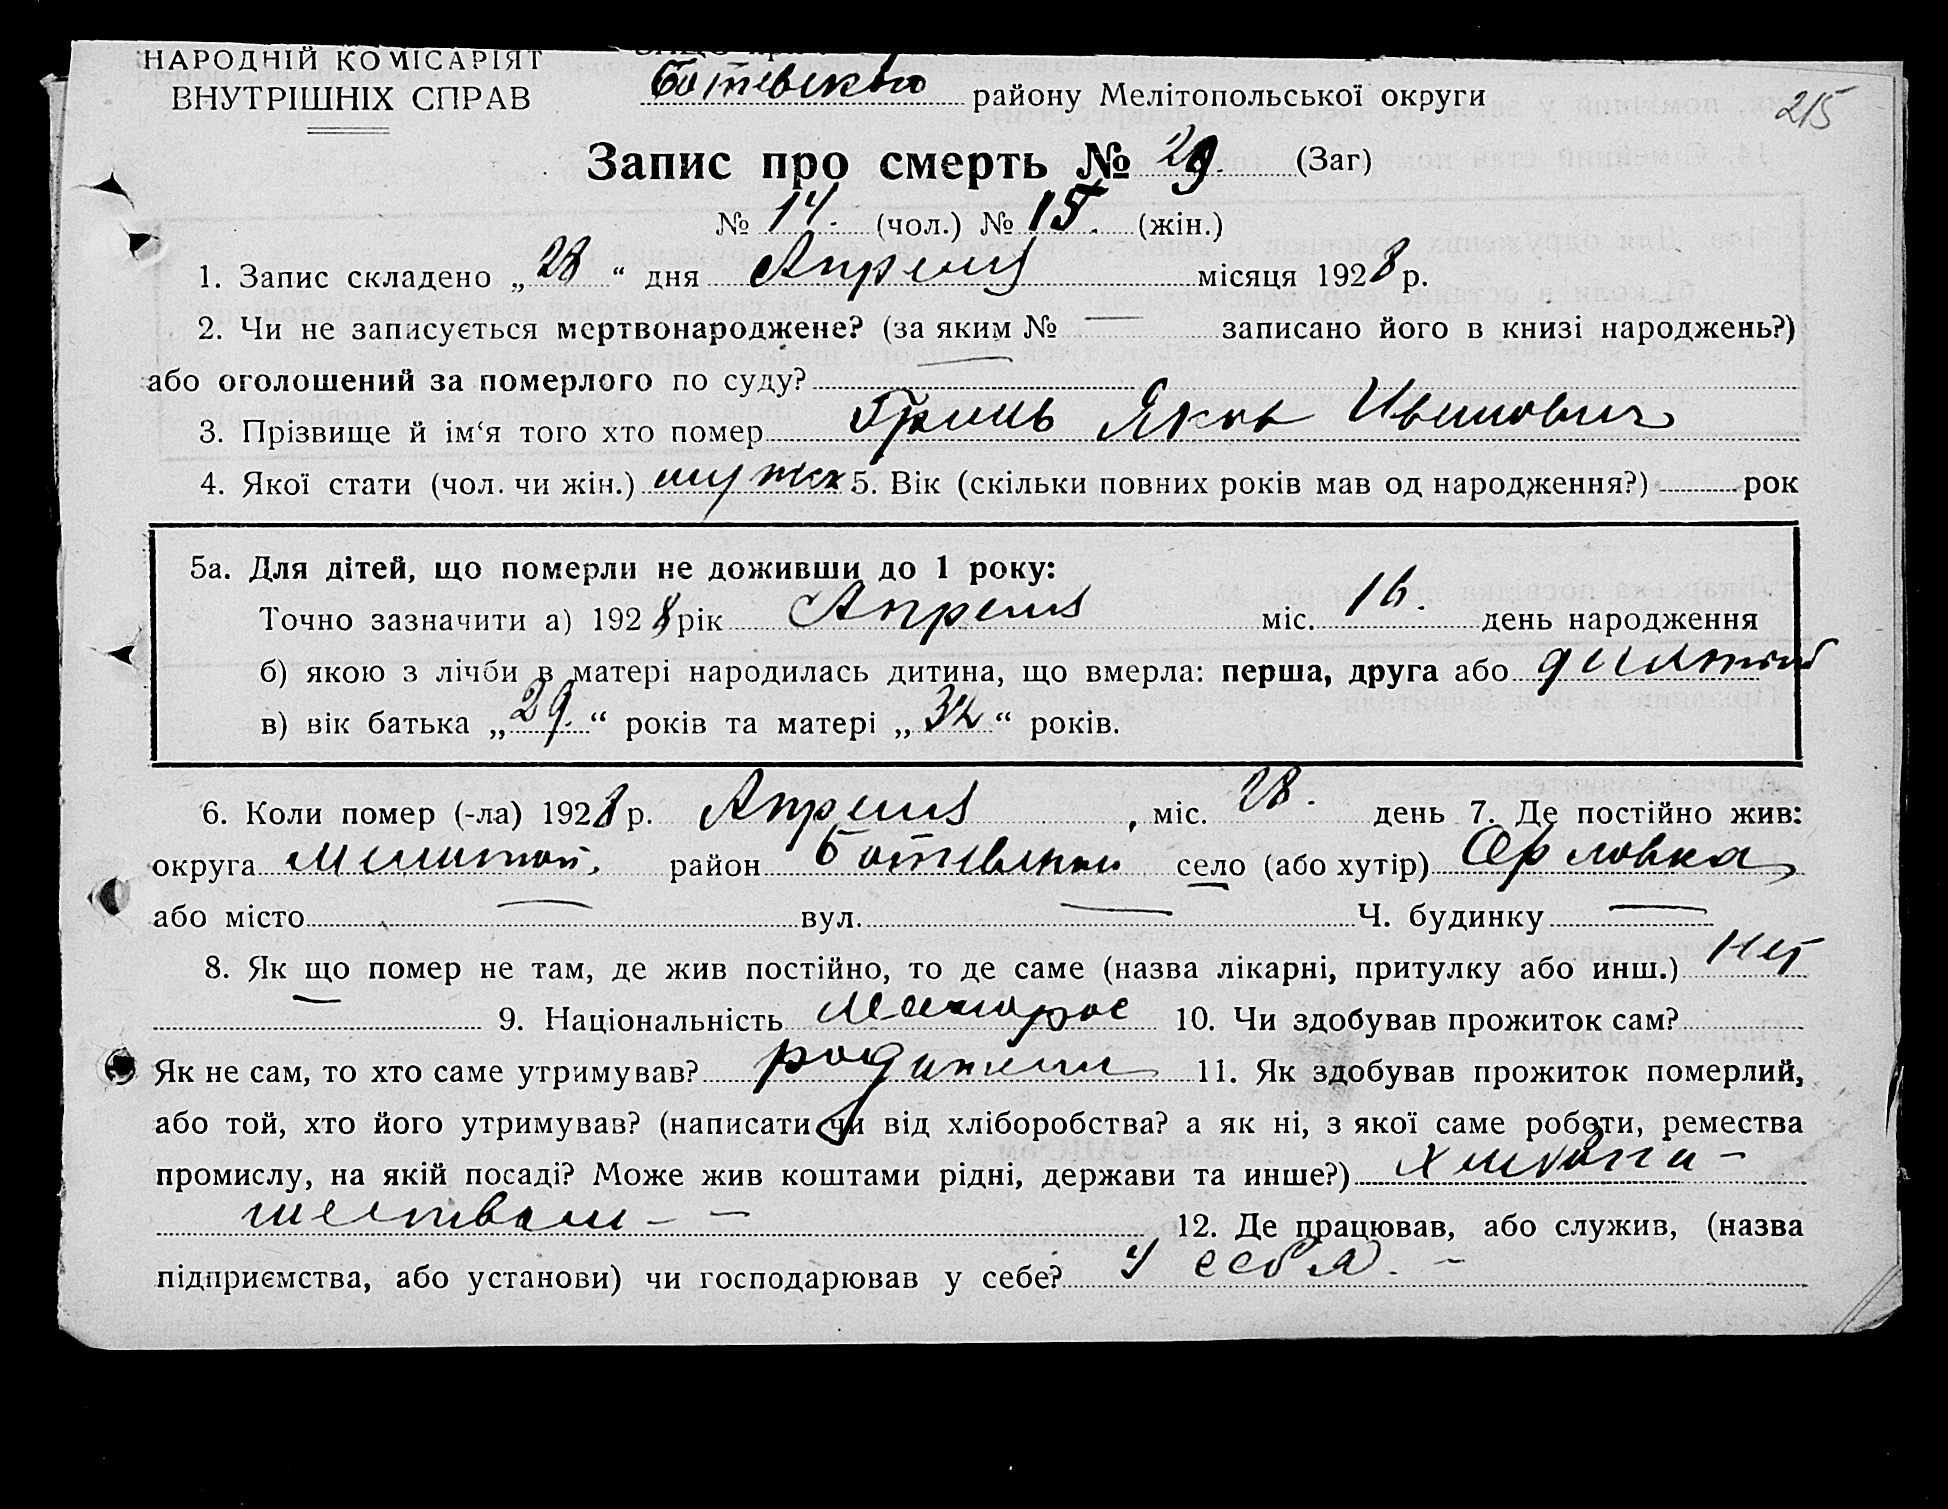 НАРОДНІЙ КОМІСАРІЯТ
ВНУТРІШНІХ СПРАВ
Ботевского району Мелітопольської округи
215
Запис про смерть № 29. (Заг)
№ 14. (чол.) № 15. (жін.)
1. Запис складено „28“ дня Апреля місяця 1928 р.
2. Чи не записується мертвонароджене? (за яким № — записано його в книзі народжень?)
або оголошений за померлого по суду? —
3. Прізвище й ім‘я того хто помер Гриль Яков Иванович
4. Якої стати (чол. чи жін.) мужск 5. Вік (скільки повних років мав од народження?) рок
5а. Для дітей, що померли не доживши до 1 року:
Точно зазначити а) 1928 рік Апреля міс. 16. день народження
б) якою з лічби в матері народилась дитина, що вмерла: перша, друга або
в) вік батька „29.“ років та матері „32“ років.
6. Коли помер (-ла) 1928 р. Апреля, міс. 28. день 7. Де постійно жив:
округа Мелитоп. район Ботевский село (або хутір) Орловка
або місто — вул. — Ч. будинку —
8. Як що помер не там, де жив постійно, то де саме (назва лікарні, притулку або инш.) Нет
— 9. Національність Малорос 10. Чи здобував прожиток сам?
Як не сам, то хто саме утримував? родители 11. Як здобував прожиток померлий,
або той, хто його утримував? (написати чи від хліборобства? а як ні, з якої саме роботи, ремества
промислу, на якій посаді? Може жив коштами рідні, держави та инше?) хлебопа-
шеством - - 12. Де працював, або служив, (назва
підприємства, або установи) чи господарював у себе? У себя. -